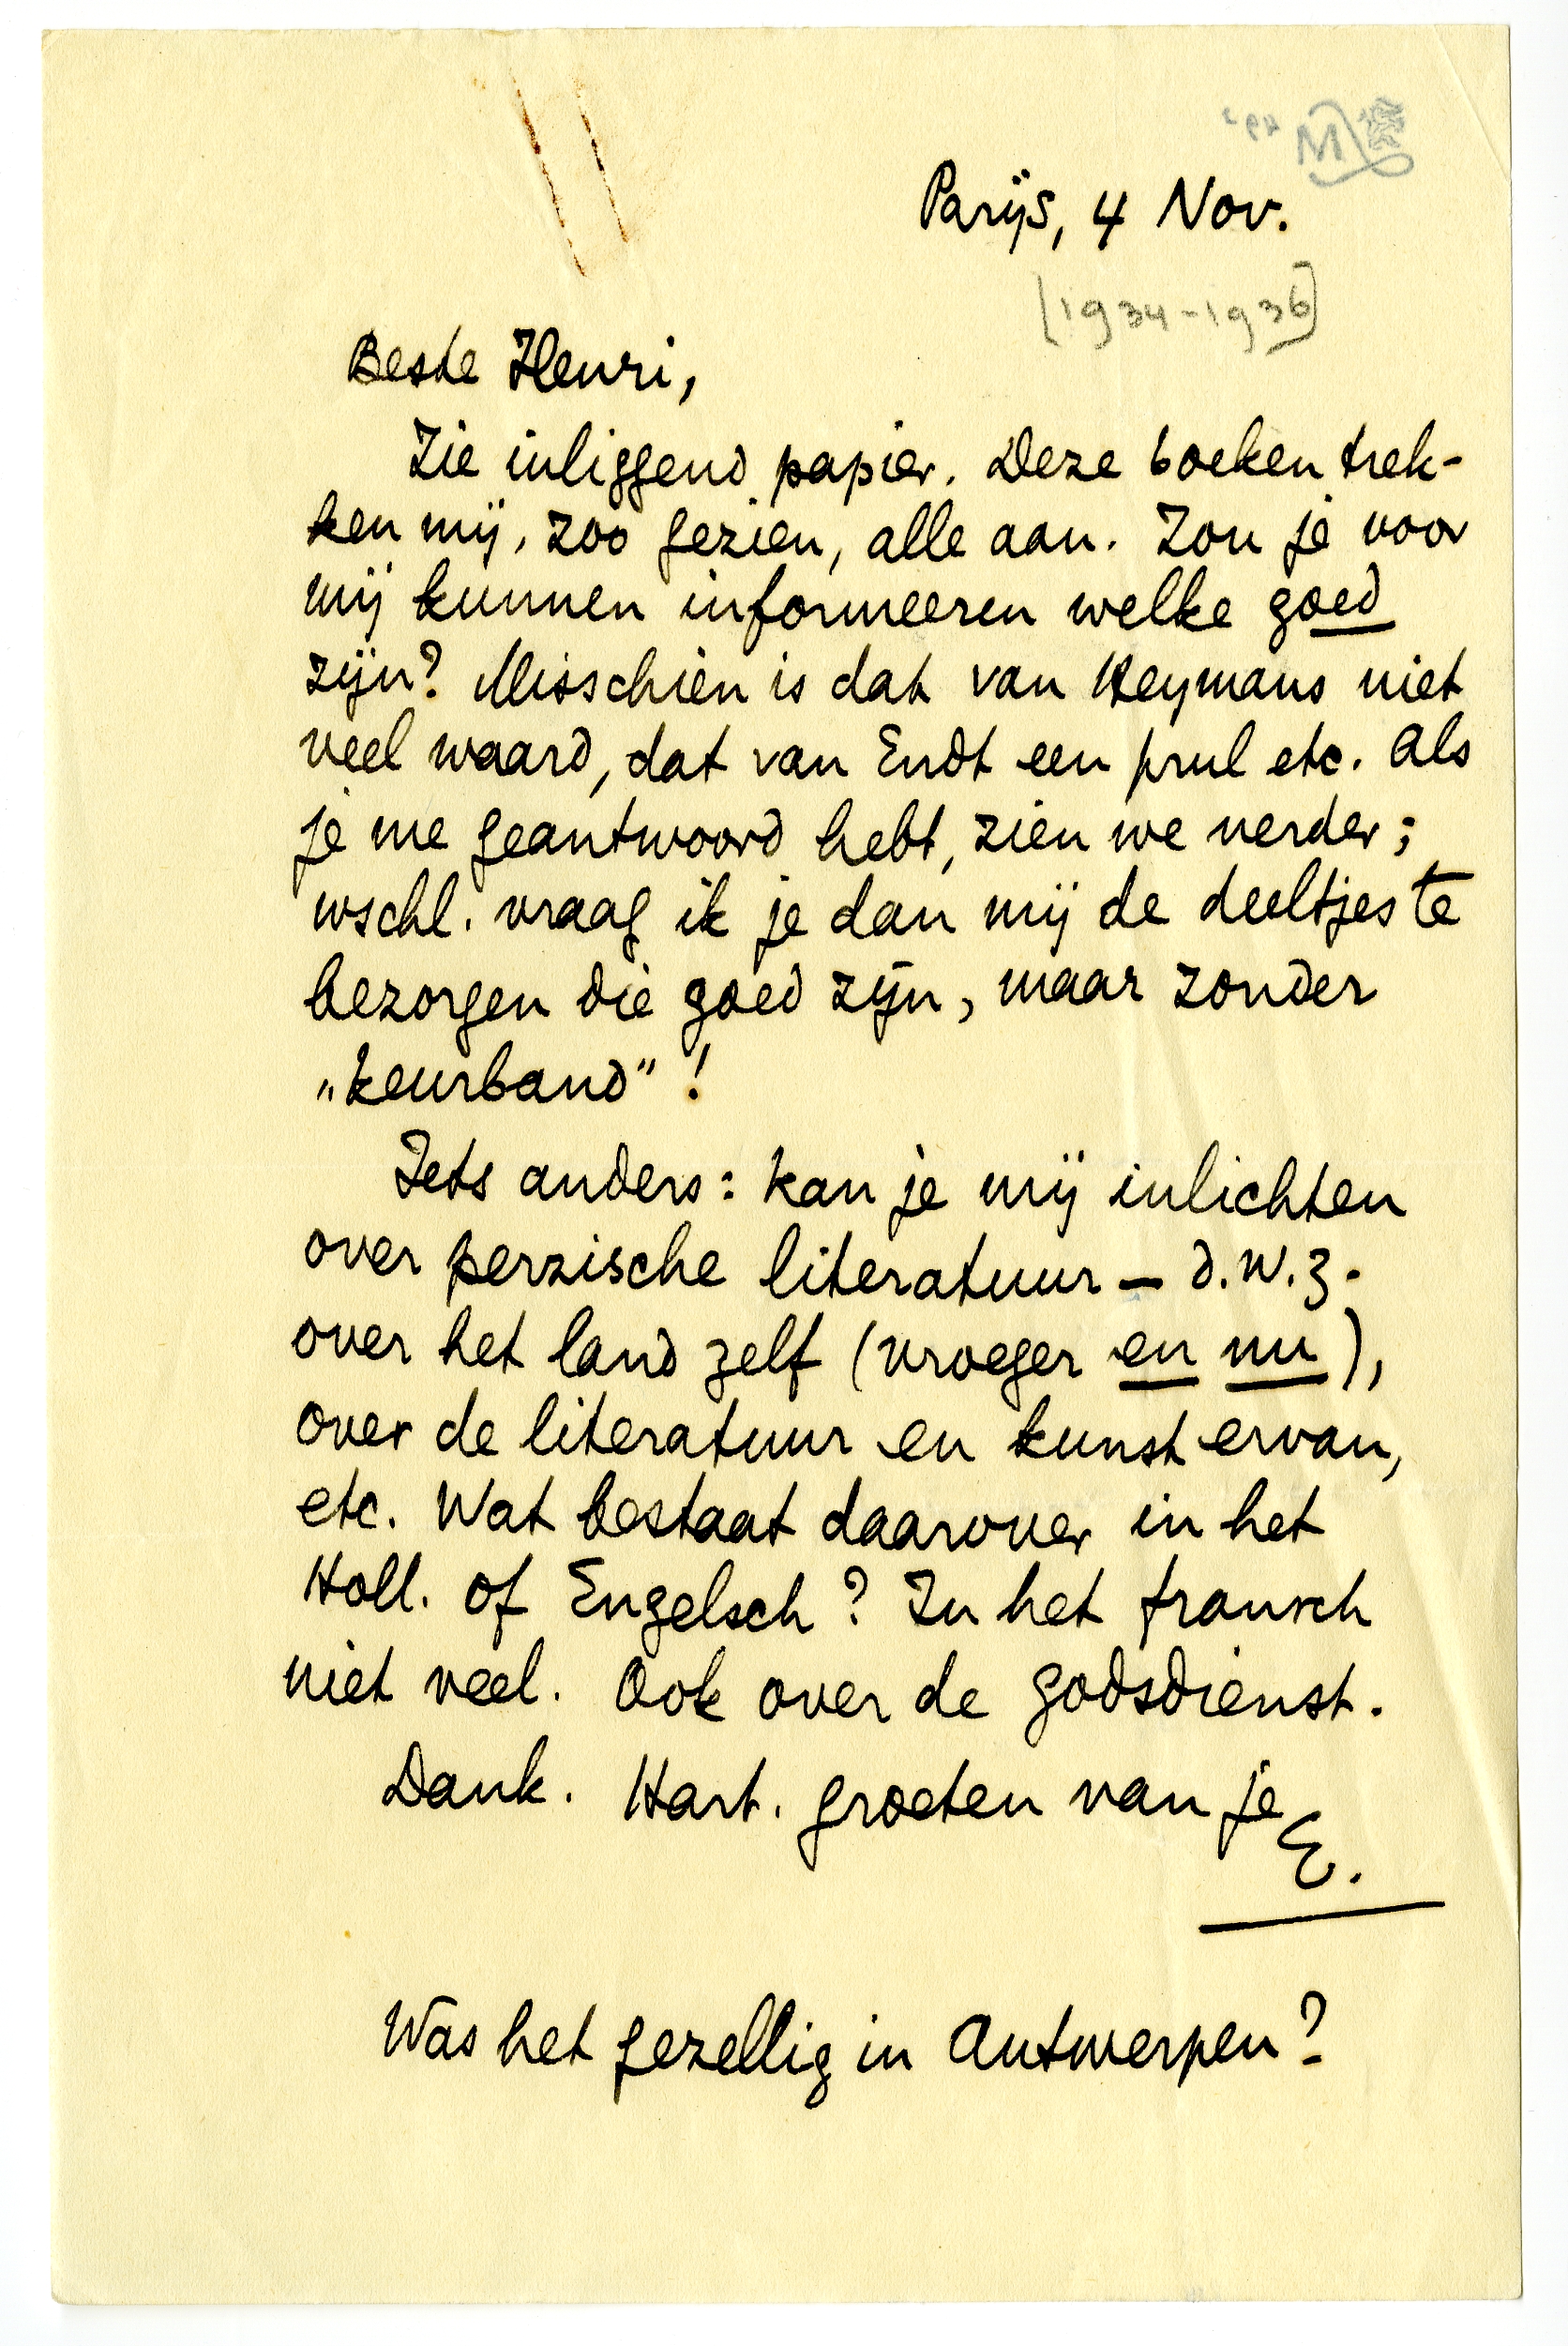 Parijs, 4 Nov.
[1934-1936]
Beste Henri,
Zie inliggend papier. Deze boeken trek-
ken mij, zoo gezien, alle aan. Zou je voor
mij kunnen informeeren welke goed
zijn? Misschien is dat van Heymans niet
veel waard, dat van Endt een prul etc. Als
je me geantwoord hebt, zien we verder;
wschl. vraag ik je dan mij de deeltjes te
bezorgen die goed zijn, maar zonder
„keurband" !
Iets anders: kan je mij inlichten
over perzische literatuur – d.w.z.
over het land zelf (vroeger en nu),
over de literatuur en kunst ervan,
etc. Wat bestaat daarover in het
Holl. of Engelsch? In het fransch
niet veel. Ook over de godsdienst.
Dank. Hart. groeten van je
E.
Was het gezellig in Antwerpen?